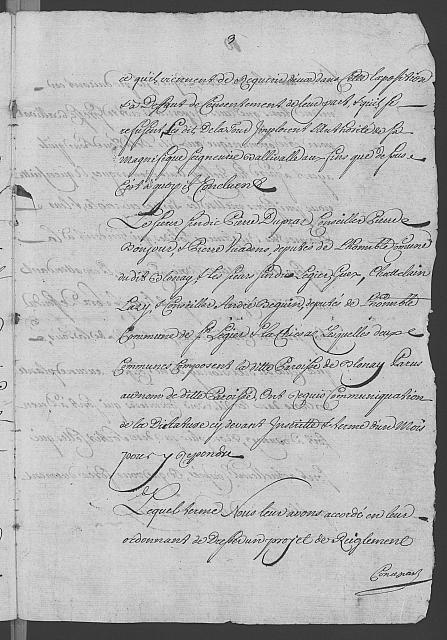 3
ce qu'ils viennent de Requerir dans Cette Exposition
Et à Deffaut de Consentement de leur part, Et qu'il se
refusent les dit de la Tour Implorent l'Authorité de Sa
magnifique Seigneurie Baillivalle aux fins que de
C'est à quoy ils Concluent
Le Sieur sindic Pierre Duprat Conseiller Pierre
Bonjour, et Pierre deputés de l'Honble Commune
du dit Blonay, & les Sieurs sindic Légier Chattelain
et Conseiller André Beguin, deputes de l'Honnble
Commune de St Légier & la Chiesaz Lesquelles deux
Communes Composent la ditte Paroisse de Blonay Parus
au nom de ditte Paroisse, Ont Requis Communiquation
de la Dictature cy devant Inserée, & terme d'un Mois
pour y Repondre
Lequel terme Nous leur avons accordé en leur
ordonnant de Dresser un projet de Reiglement